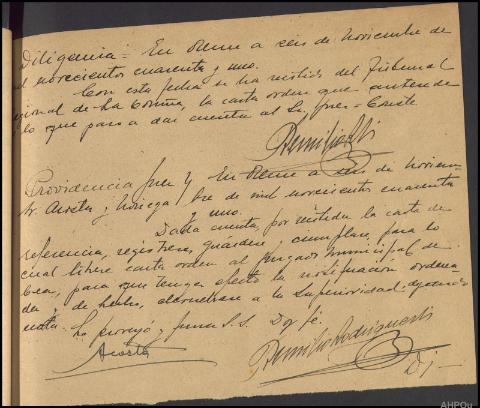 Diligencia = En Orense a seis de Noviembre de
mil novecientos cuarenta y uno.
Con esta fecha se ha recibido del Tribunal
Regional de La Coruña, la carta orden que antecede
lo que paso a dar cuenta al Sr. Juez = Conste
Providencia Juez y En Orense a seis de Noviem-
Sr. Acosta y Noriega bre de mil novecientos cuarenta
y uno.
Dada cuenta, por recibida la carta de
referencia, regístrese, guárdese y cúmplase, para lo
cual líbrese carta orden al Juzgado Municipal de
para que tenga efecto la notificación ordena-
da y de hecho, devuélvase a la Superioridad dejando
nota. Lo proveyó y firma S.S. Doy fé.
Acosta
Remilio Rodríguez
AHPOu